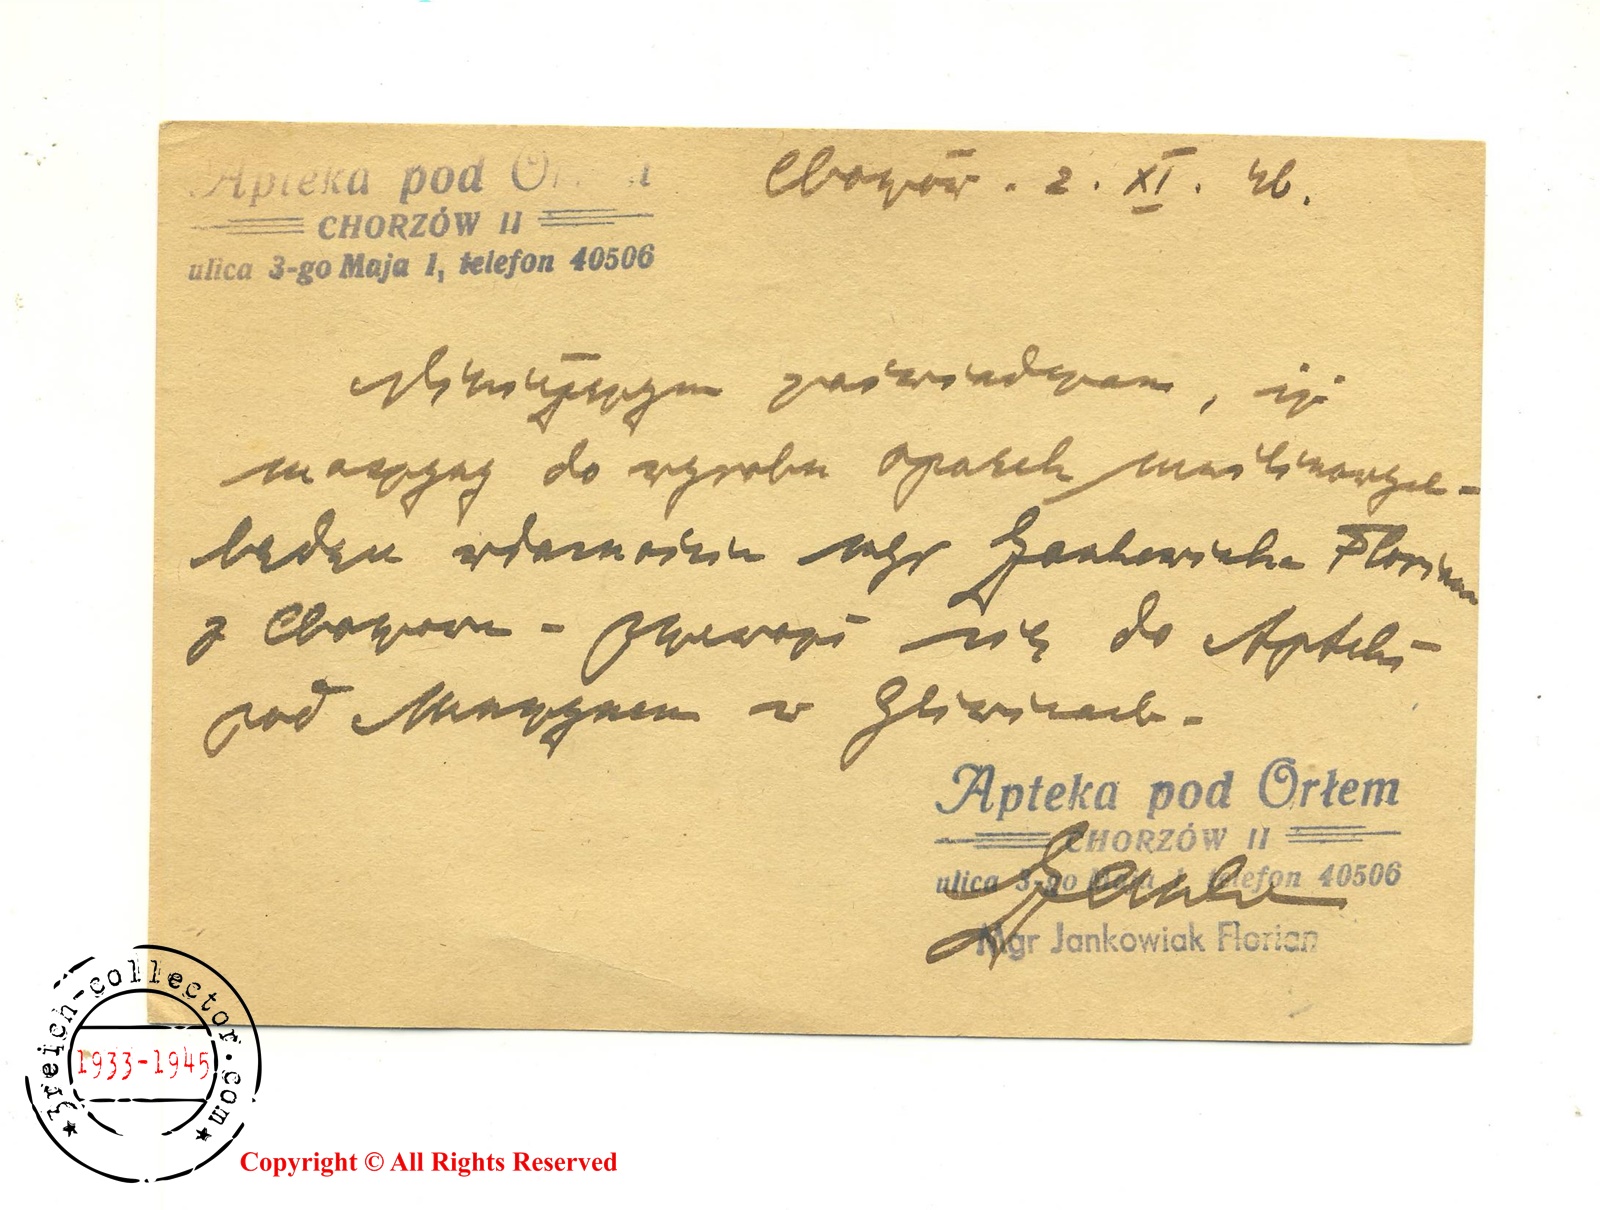 Apteka pod
CHORZÓW II
ulica 3-go Maja 1, telefon 40506
Chorzów . 2. XI. 46.
Niniejszym zaświadczam, iż
maszynę do wyrobu opasek
będącą własnością mgr Jankowiaka Floriana
z Chorzowa - się do Apteki
pod Murzynem w Gliwicach -
Apteka pod Orłem
CHORZÓW II
ulica 3-go Maja 1, telefon 40506
Mgr Jankowiak Florian
3reich-collector.com
1933-1945
Copyright © All Rights Reserved